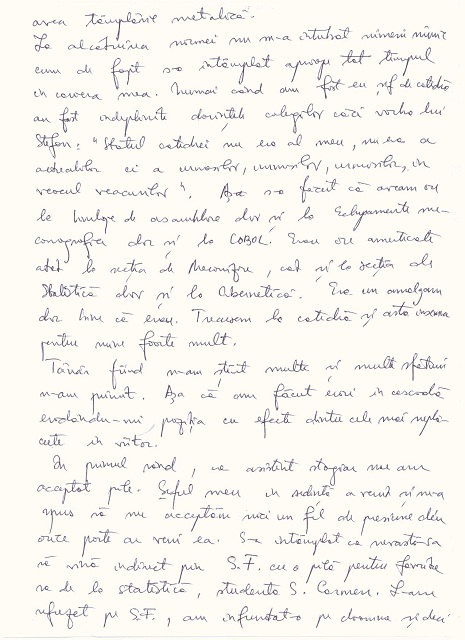 avea tâmplărie metalică.
La alcătuirea normei nu m-a întrebat nimeni nimic
cum de fapt s-a întâmplat aproape tot timpul
în cariera mea. Numai când am fost eu șef de catedră
au fost îndeplinite dorințele colegilor căci vorba lui
Ștefan: "Statul catedrei nu era al meu, nu era a
actualilor ci a urmașilor, urmașilor, urmașilor, în
veacul veacurilor". Așa s-a făcut că aveam ore
la limbaje de asamblare dar și la Echipamente me-
canografice dar și la COBOL. Erau ore amestecate
atât la secția de Mecanizare, cât și la secția de
Statistică dar și la Cibernetică. Era un amalgam
dar bine că erau. Treceam la catedră și asta însemna
pentru mine foarte mult.
Tânăr fiind n-am știut multe și multe sfaturi
n-am primit. Așa că am făcut erori în cascadă
erodându-mi poziția cu efecte dintre cele mai neplă-
cute în viitor.
În primul rând, ca asistent stagiar nu am
acceptat pile. Șeful meu în ședință a venit și ne-a
spus să nu acceptăm nici un fel de presiune din
orice parte ar veni ea. S-a întâmplat ca nevastă-sa
să vină indirect prin S.F. cu o pilă pentru favorita
sa de la statistică, studenta S. Carmen. L-am
refuzat pe S.F., am înfruntat-o pe doamna și deci